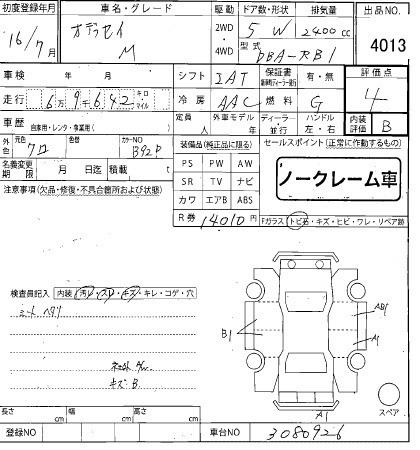 初度登録年月 車名・グレード 駆動 ドア数・形状 排気量 出品NO
16/7月 オデッセイ M 2WD・4WD 5 W 2400cc 4013
型式 DBA-RB1
車検 年 月 シフト IAT 保証書 有・無 評価点
走行 6万9千642 キロ マイル 冷房 AAC 燃料 G 4
車歴 自家用・レンタ・事業用( ) 定員 人 外車モデル 年 ディーラー・並行 ハンドル 左・右 内装評価 B
外色 元色 クロ 色替 カラーNO B92P 装備品(純正品に限る) セールスポイント(正常に作動するもの)
名義変更期限 月 日迄 積載 t PS PW AW
ノークレーム車
注意事項(欠品・修復・不具合箇所および状態) SR TV ナビ
カワ エアB ABS
R券 14010円 Fガラス トビ石・キズ・ヒビ・ワレ・リペア跡
検査員記入 内装 汚レ・スレ・キズ・キレ・コゲ・穴
シートヘタリ
B1 AB1
A1
キズB.
スペア
A1
長さ cm 幅 cm 高さ cm
登録NO 車台NO 3080926